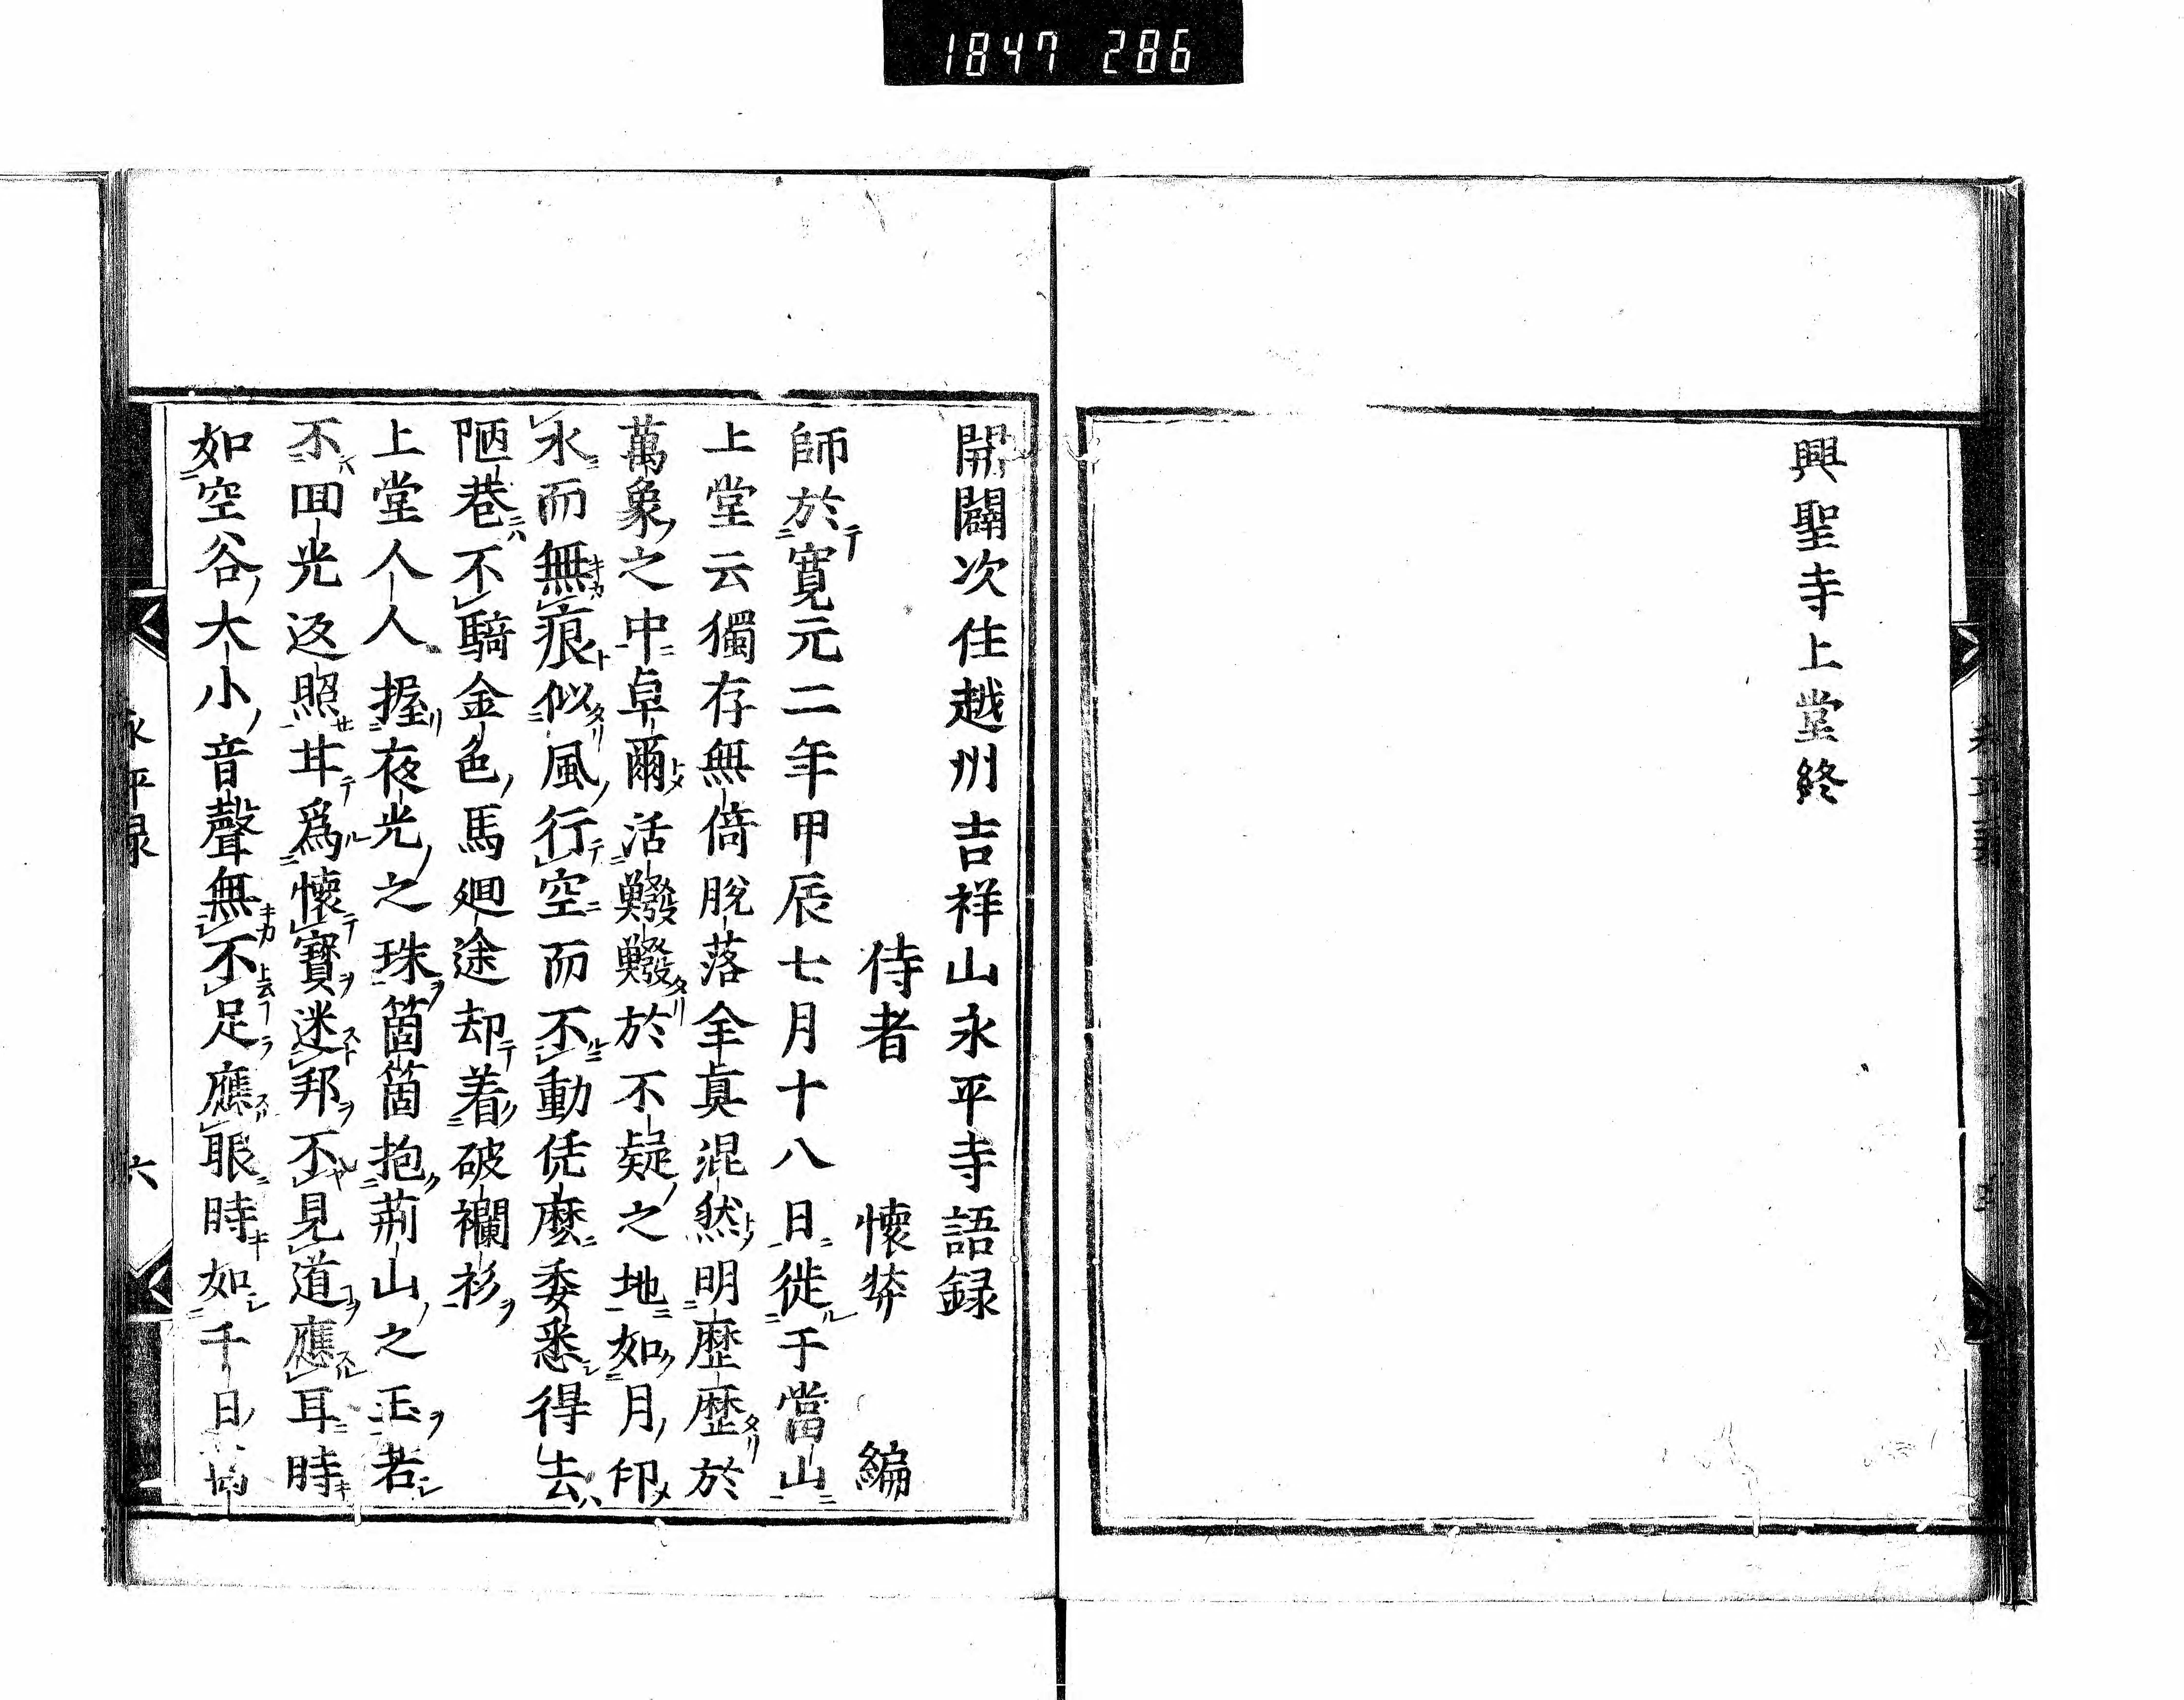 1847 286
興聖寺上堂終
開闢次住越州吉祥山永平寺語録
侍者 懷弉 編
師於寛元二年甲辰七月十八日徙于當山
上堂云獨存無倚脱落全眞混然明歴歴於
萬象之中卓爾活鱍鱍於不疑之地如月印
水而無痕似風行空而不動恁麼委悉得去
陋巷不騎金色馬廻途却着破襴衫
上堂人人握夜光之珠箇箇抱荊山之玉若
不回光返照甘爲懷寶迷邦不見道應耳時
如空谷大小音聲無不足應眼時如千日
永平録
六